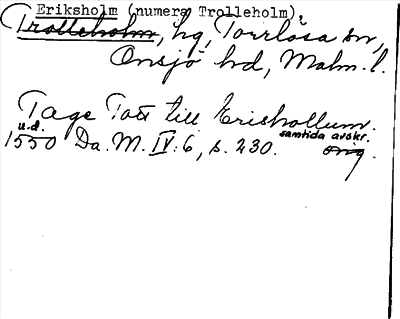 Eriksholm (numera Trolleholm)
Trolleholm, hg, Torrlösa sn,
Onsjö hd, Malm. l.
Tage Tott till Erishollum.
u.d. samtida avskr.
1550 Da. M. IV: 6, s. 230. orig.